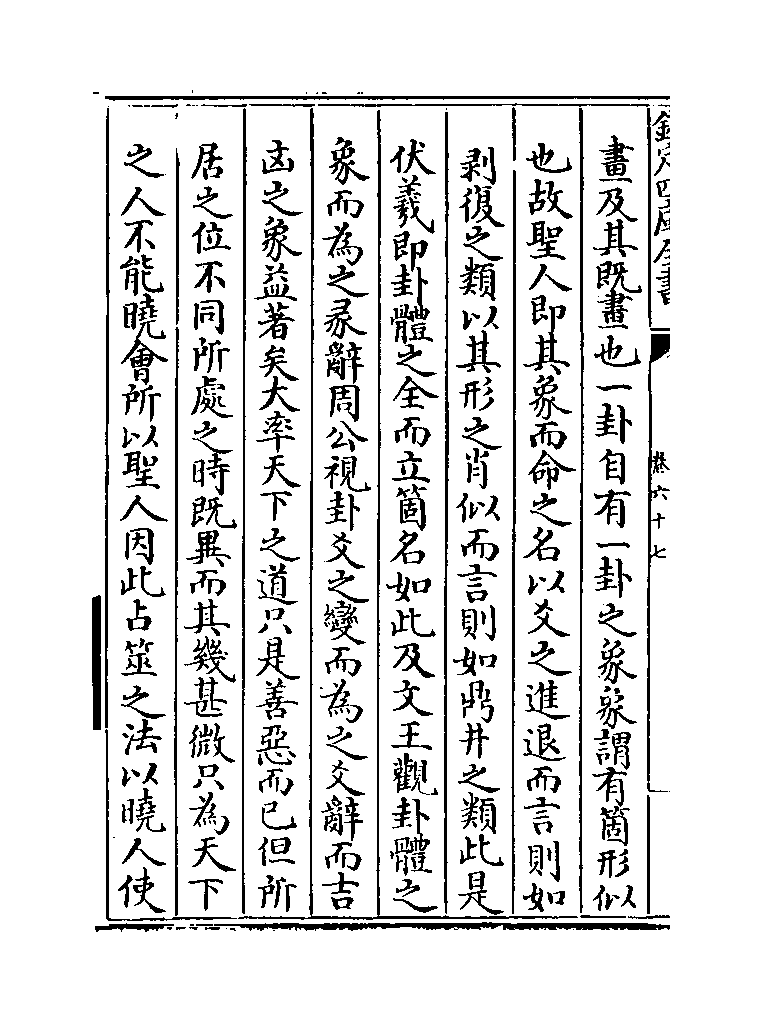 欽定四庫全書
卷六十七
畫及其既畫也一卦自有一卦之象象謂有箇形似
也故聖人即其象而命之名以爻之進退而言則如
剥復之類以其形之肖似而言則如鼎井之類此是
伏羲即卦體之全而立箇名如此及文王觀卦體之
象而為之彖辭周公視卦爻之變而為之爻辭而吉
凶之象益著矣大率天下之道只是善惡而已但所
居之位不同所處之時既異而其幾甚微只為天下
之人不能曉會所以聖人因此占筮之法以曉人使